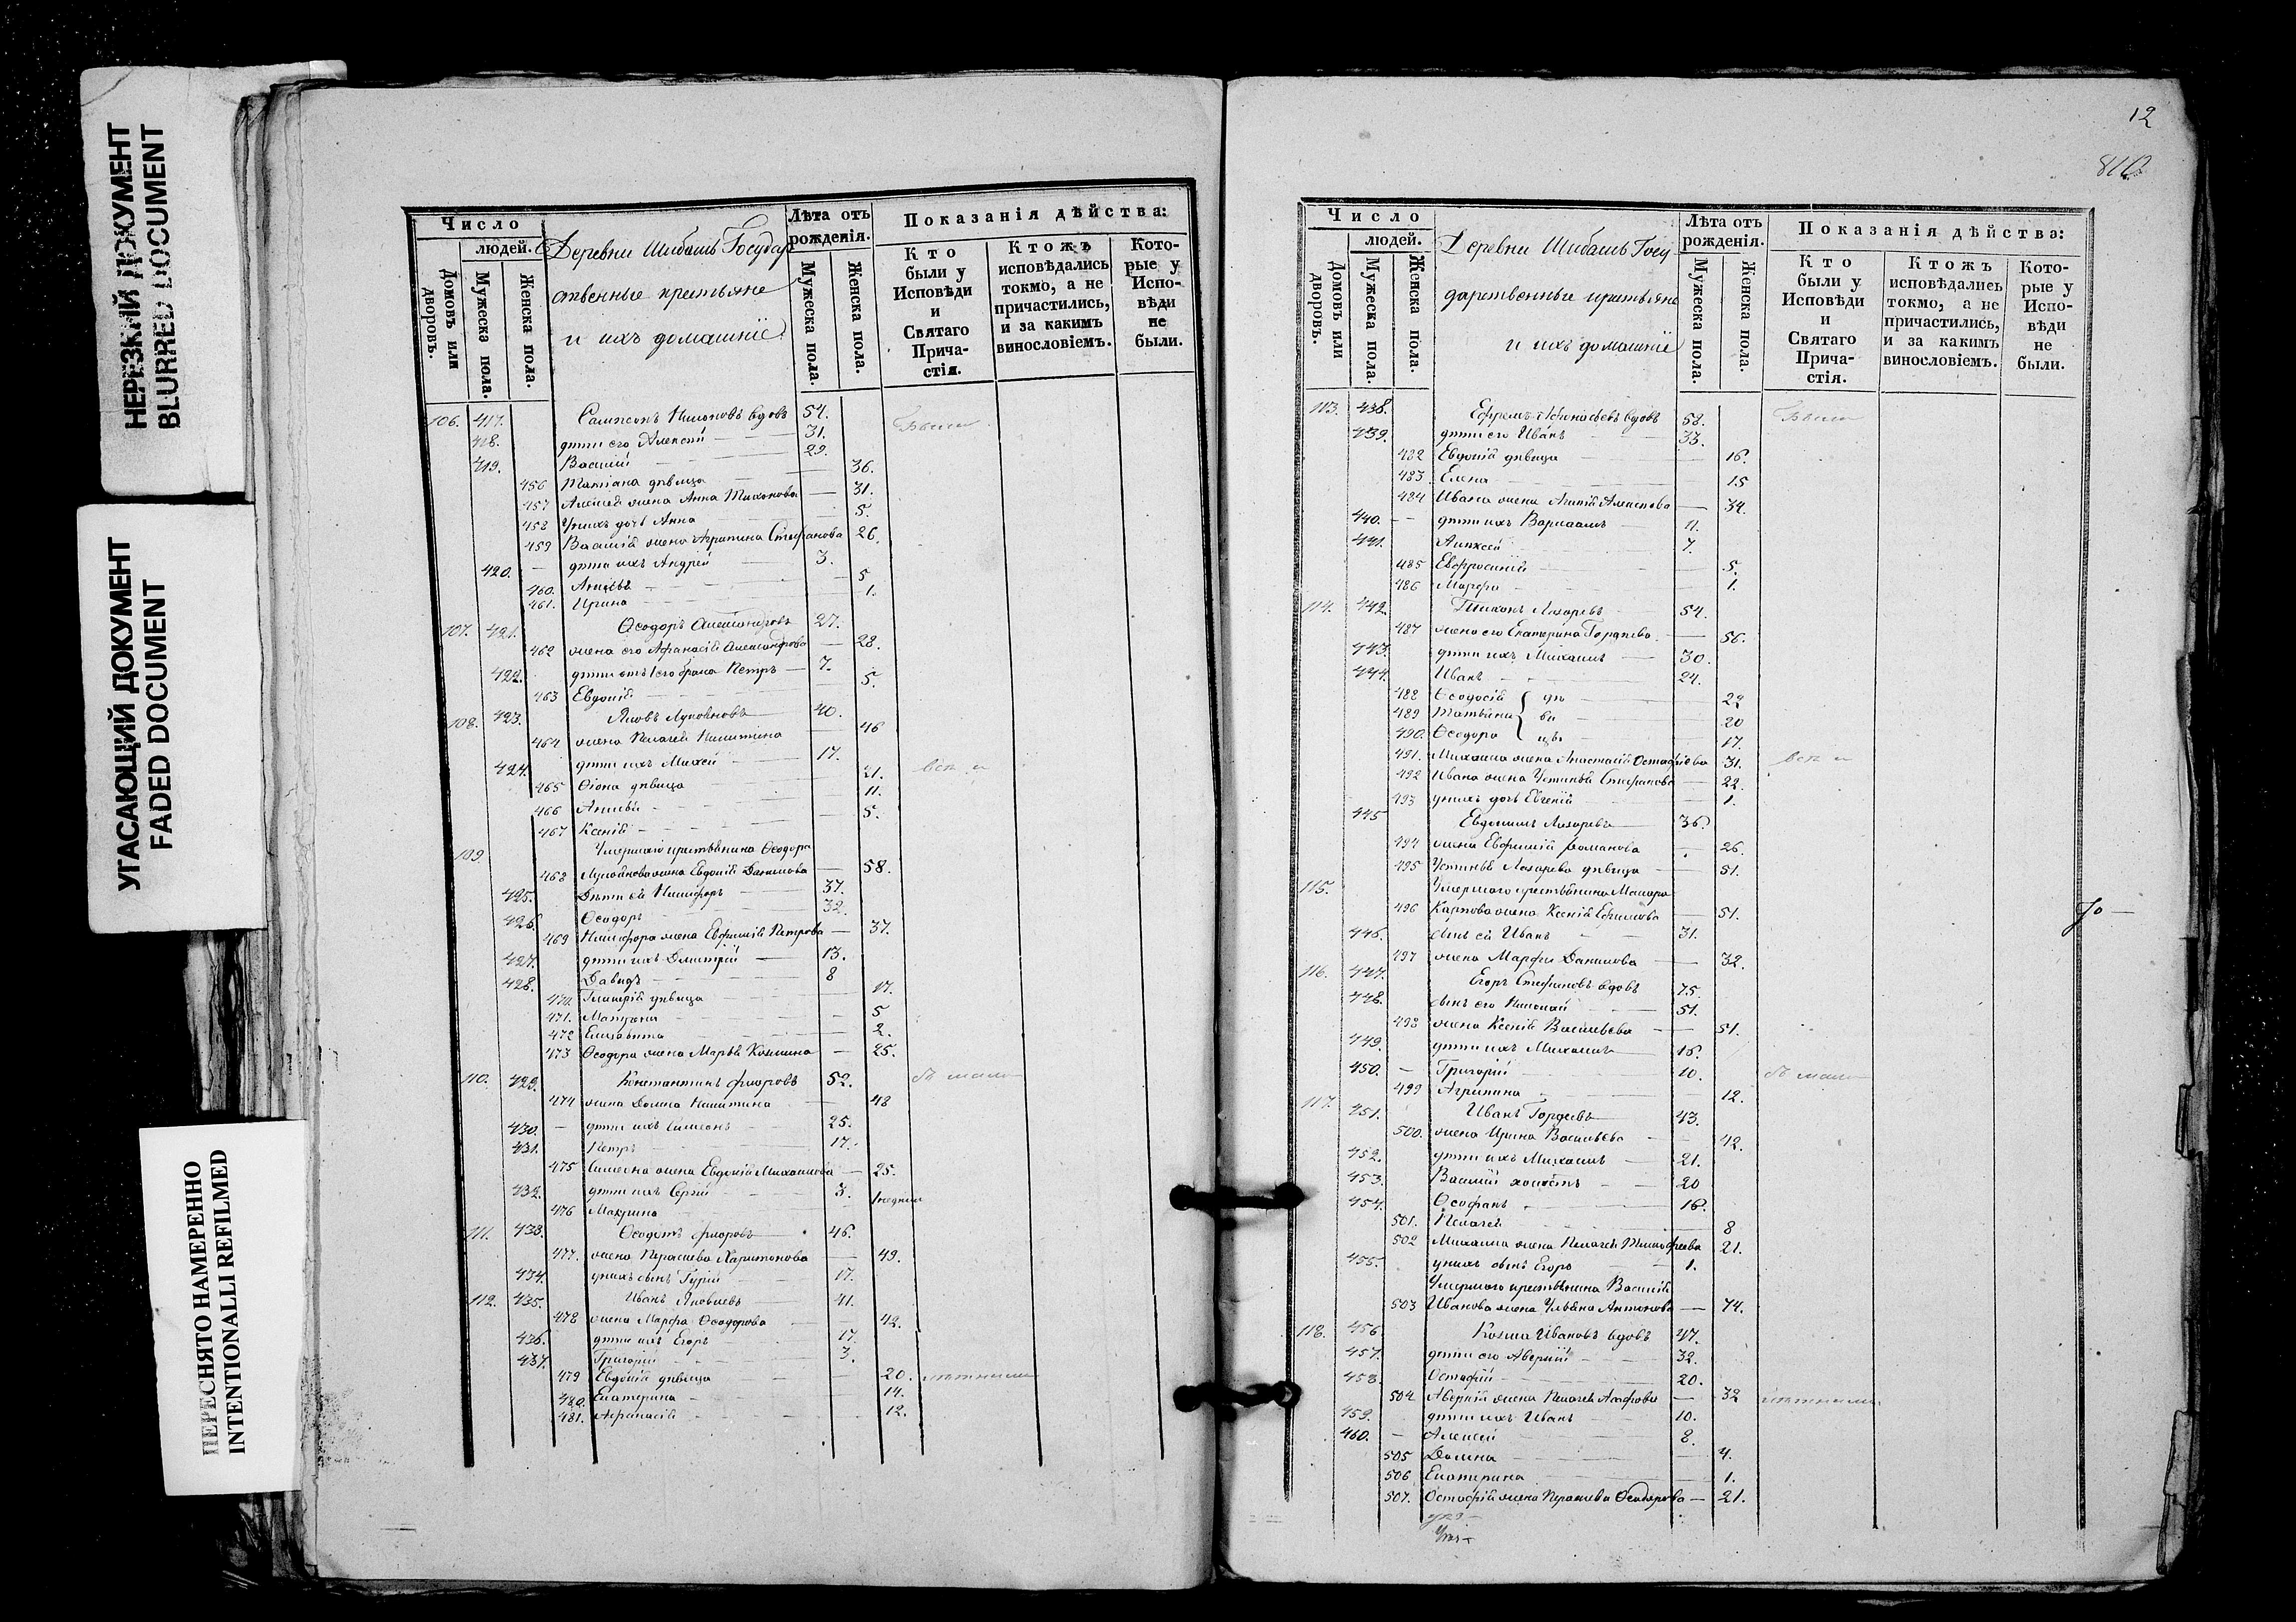 НЕРЕЗКИЙ ДОКУМЕНТ
BLURRED DOCUMENT
УГАСАЮЩИЙ ДОКУМЕНТ
FADED DOCUMENT
ПЕРЕСНЯТО НАМЕРЕННО
INTENTIONALLI REFILMED
Число
людей.
Домовъ или дворовъ.
Мужеска пола.
Женска пола.
Деревни Шибашъ Государ
ственные крестьяне
и ихъ домашніе
Лѣта отъ рожденія.
Мужеска пола.
Женска пола.
Показанія дѣйства:
Кто были у Исповѣди и Святаго Прича-стія.
Ктожъ исповѣдались токмо, а не причастились, и за какимъ винословіемъ.
Кото-рые у Испо-вѣди не были.
106. 417. Сампсонъ вдовъ 54. Были
418. дѣти его Алексѣй 31.
419. Василій 29.
456 Татіана дѣвица 36.
457 Алексѣя жена Анна Тихонова 31.
458 У нихъ дочь Анна 5.
459 Василія жена Агрипина Стефанова 26.
420. дѣти ихъ Андрей 3.
460. 5
461. Ирина 1.
107. 421. Ѳеодоръ 27.
462 жена его Афанасія Александрова 28.
422. дѣти его брата Петръ 7.
463 Евдокія 5.
108. 423. Яковъ 40.
464 жена Пелагея Никитина 46
424. дѣти ихъ 17.
465 дѣвица 21. всѣ и
466 11.
467 Ксенія 5.
109. Умершаго крестьянина Ѳеодора
468 жена Евдокія Данилова 58.
425. Дѣти ея Никифоръ 37.
426. Ѳеодоръ 32.
469 Никифора жена Евфимія Петрова 37.
427. дѣти ихъ Димитрій 13.
428. Давидъ 8
470. Гликерія дѣвица 17.
471. Матрона 5
472 Елисавета 2.
473 Ѳеодора жена Марья Козмина 25.
110. 429. Константинъ Фроловъ 52.
474 жена Домна Никитина 48
430. дѣти ихъ Симеонъ 25.
431. Петръ 17.
475 Симеона жена Евдокія Михаилова 25.
432. дѣти ихъ Сергій 3.
476 Макрина 1 недѣли
111. 433. Ѳеодотъ Фроловъ 46.
477. жена Параскева Харитонова 49.
434. у нихъ сынъ Гурій 17.
112. 435. Иванъ Яковлевъ 41.
478 жена Марфа Ѳеодорова 42.
436. дѣти ихъ Егоръ 17.
437. Григорій 3.
479 Евдокія дѣвица 20.
480. Екатерина 14.
481. Афанасія 12.
12
Число
людей.
Домовъ или дворовъ.
Мужеска пола.
Женска пола.
Деревни Шибашъ Госу
дарственные крестьяне
и ихъ домашніе
Лѣта отъ рожденія.
Мужеска пола.
Женска пола.
Показанія дѣйства:
Кто были у Исповѣди и Святаго Прича-стія.
Ктожъ исповѣдались токмо, а не причастились, и за какимъ винословіемъ.
Кото-рые у Испо-вѣди не были.
113. 438. Ефремъ Афонасьевъ вдовъ 58. Были
439. дѣти его Иванъ 33.
482 Евдокія дѣвица 16.
483 Елена 15
484 Ивана жена Алексѣева 34.
440. дѣти ихъ Варлаамъ 11.
441. Алексѣй 7.
485 Евфросинія 5.
486 Марфа 1.
114. 442. Тихонъ Лазаревъ 54.
487 жена его Екатерина Гордѣева 56.
443. дѣти ихъ Михаилъ 30.
444. Иванъ 24.
488 Ѳеодосія дѣ 22
489 Татьяна ви 20
490. Ѳеодора цы 17.
491. Михаила жена Анастасія Остафіева 31. всѣ и
492 Ивана жена Устинья Стефанова 22.
493 у нихъ дочь Евгенія 1.
445 Евдокимъ Лазаревъ 36.
494 жена Евфимія Романова 26.
495 Устинья Лазарева дѣвица 51.
115. Умершаго крестьянина Макара
496 Карпова жена Ксенія Ефимова 51.
446. сынъ ея Иванъ 31.
497 жена Марфа Данилова 32.
116. 447. Егоръ Стефановъ вдовъ 75.
448. сынъ его Николай 51.
498 жена Ксенія Васильева 51.
449. дѣти ихъ Михаилъ 16.
450. Григорій 10.
499 Агрипина 12.
117. 451. Иванъ Гордѣевъ 43.
500. жена Ирина Васильева 42.
452. дѣти ихъ Михаилъ 21.
453. Василій холостъ 20
454. Ѳеофанъ 16.
501. Пелагея 8
502 Михаила жена Пелагея Тимофеева 21.
455. у нихъ сынъ Егоръ 1.
Умершаго крестьянина Василія
503 Иванова жена Ульяна Антонова 74.
118. 456 Козма Ивановъ вдовъ 47.
457. дѣти его Аверкій 32.
458. Остафій 20.
504 Аверкія жена Пелагея 32
459. дѣти ихъ Иванъ 10.
460. Алексѣй 8.
505 Домна 4.
506 Екатерина 1.
507. Остафія жена Параскева Ѳеодорова 21.